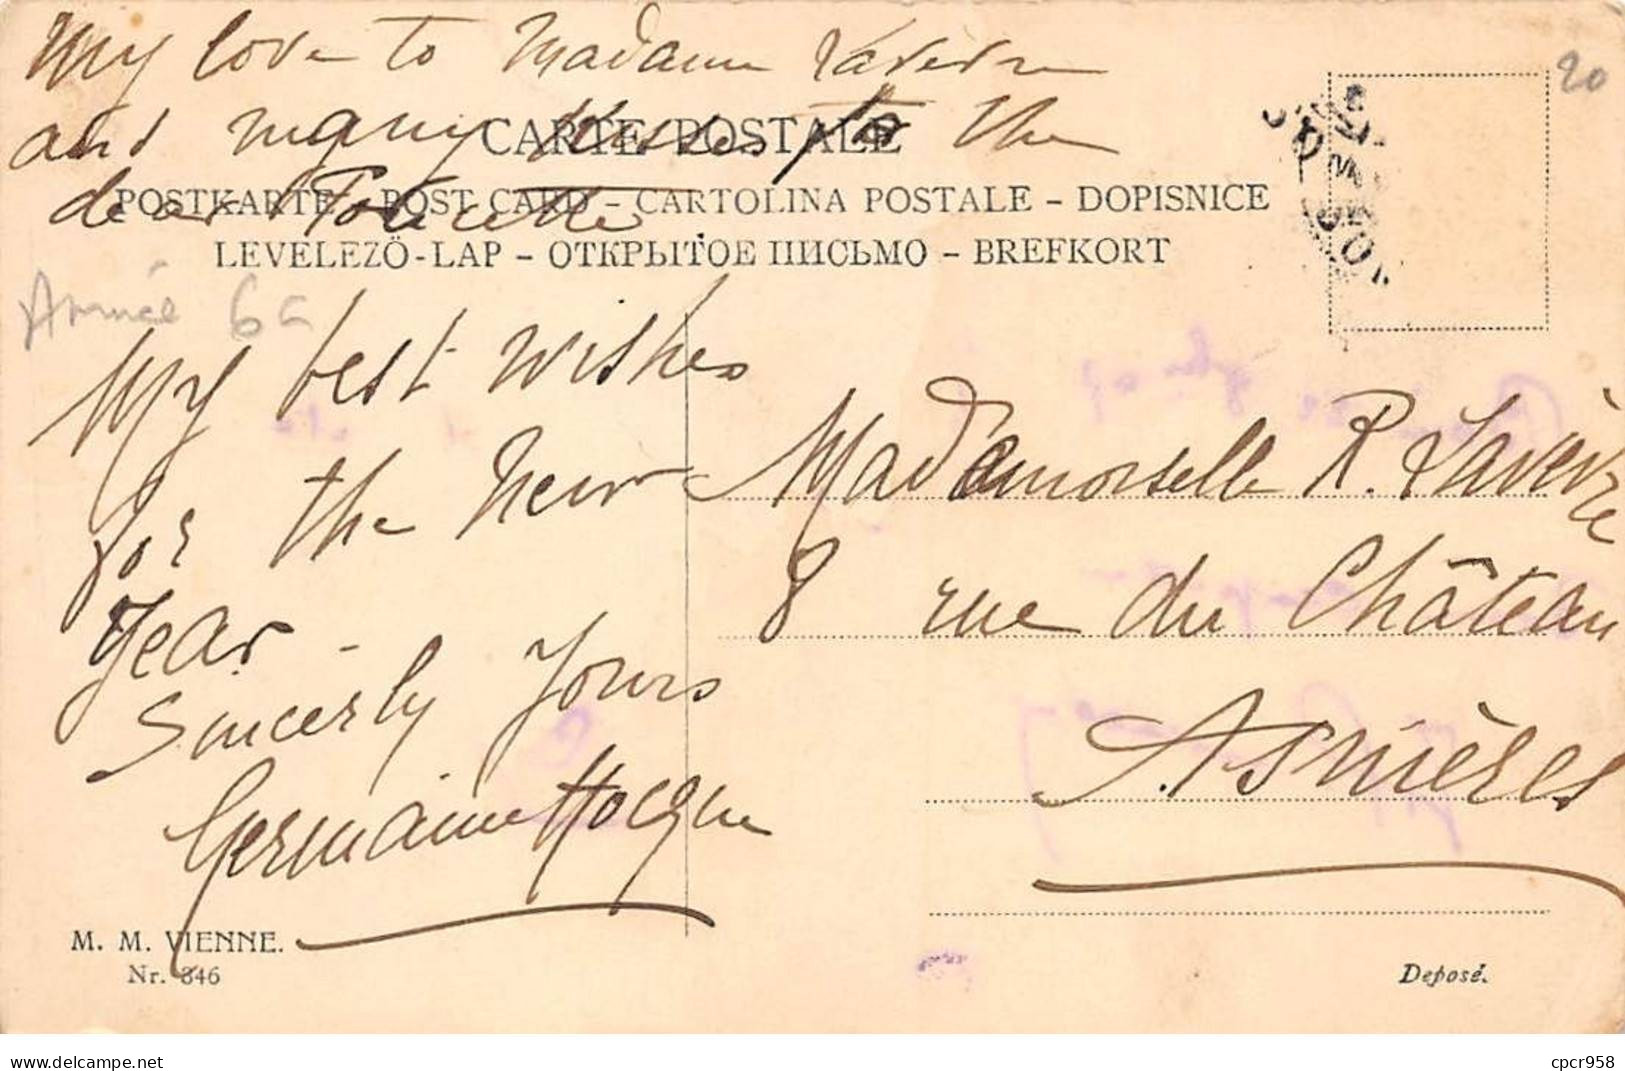 My love to Madame Laverne
and many kisses to the
dear
CARTE POSTALE
POSTKARTE - POST CARD - CARTOLINA POSTALE - DOPISNICE
LEVELEZÖ-LAP - ОТКРЫТОЕ ПИСЬМО - BREFKORT
20
Année
My best wishes
for the new
Year -
Sincerly Yours
Germaine Hocque
Mademoiselle R. Lavèvre
8 rue du Château
Asnières
M. M. VIENNE.
Nr. 346
Deposé.
cpcr958